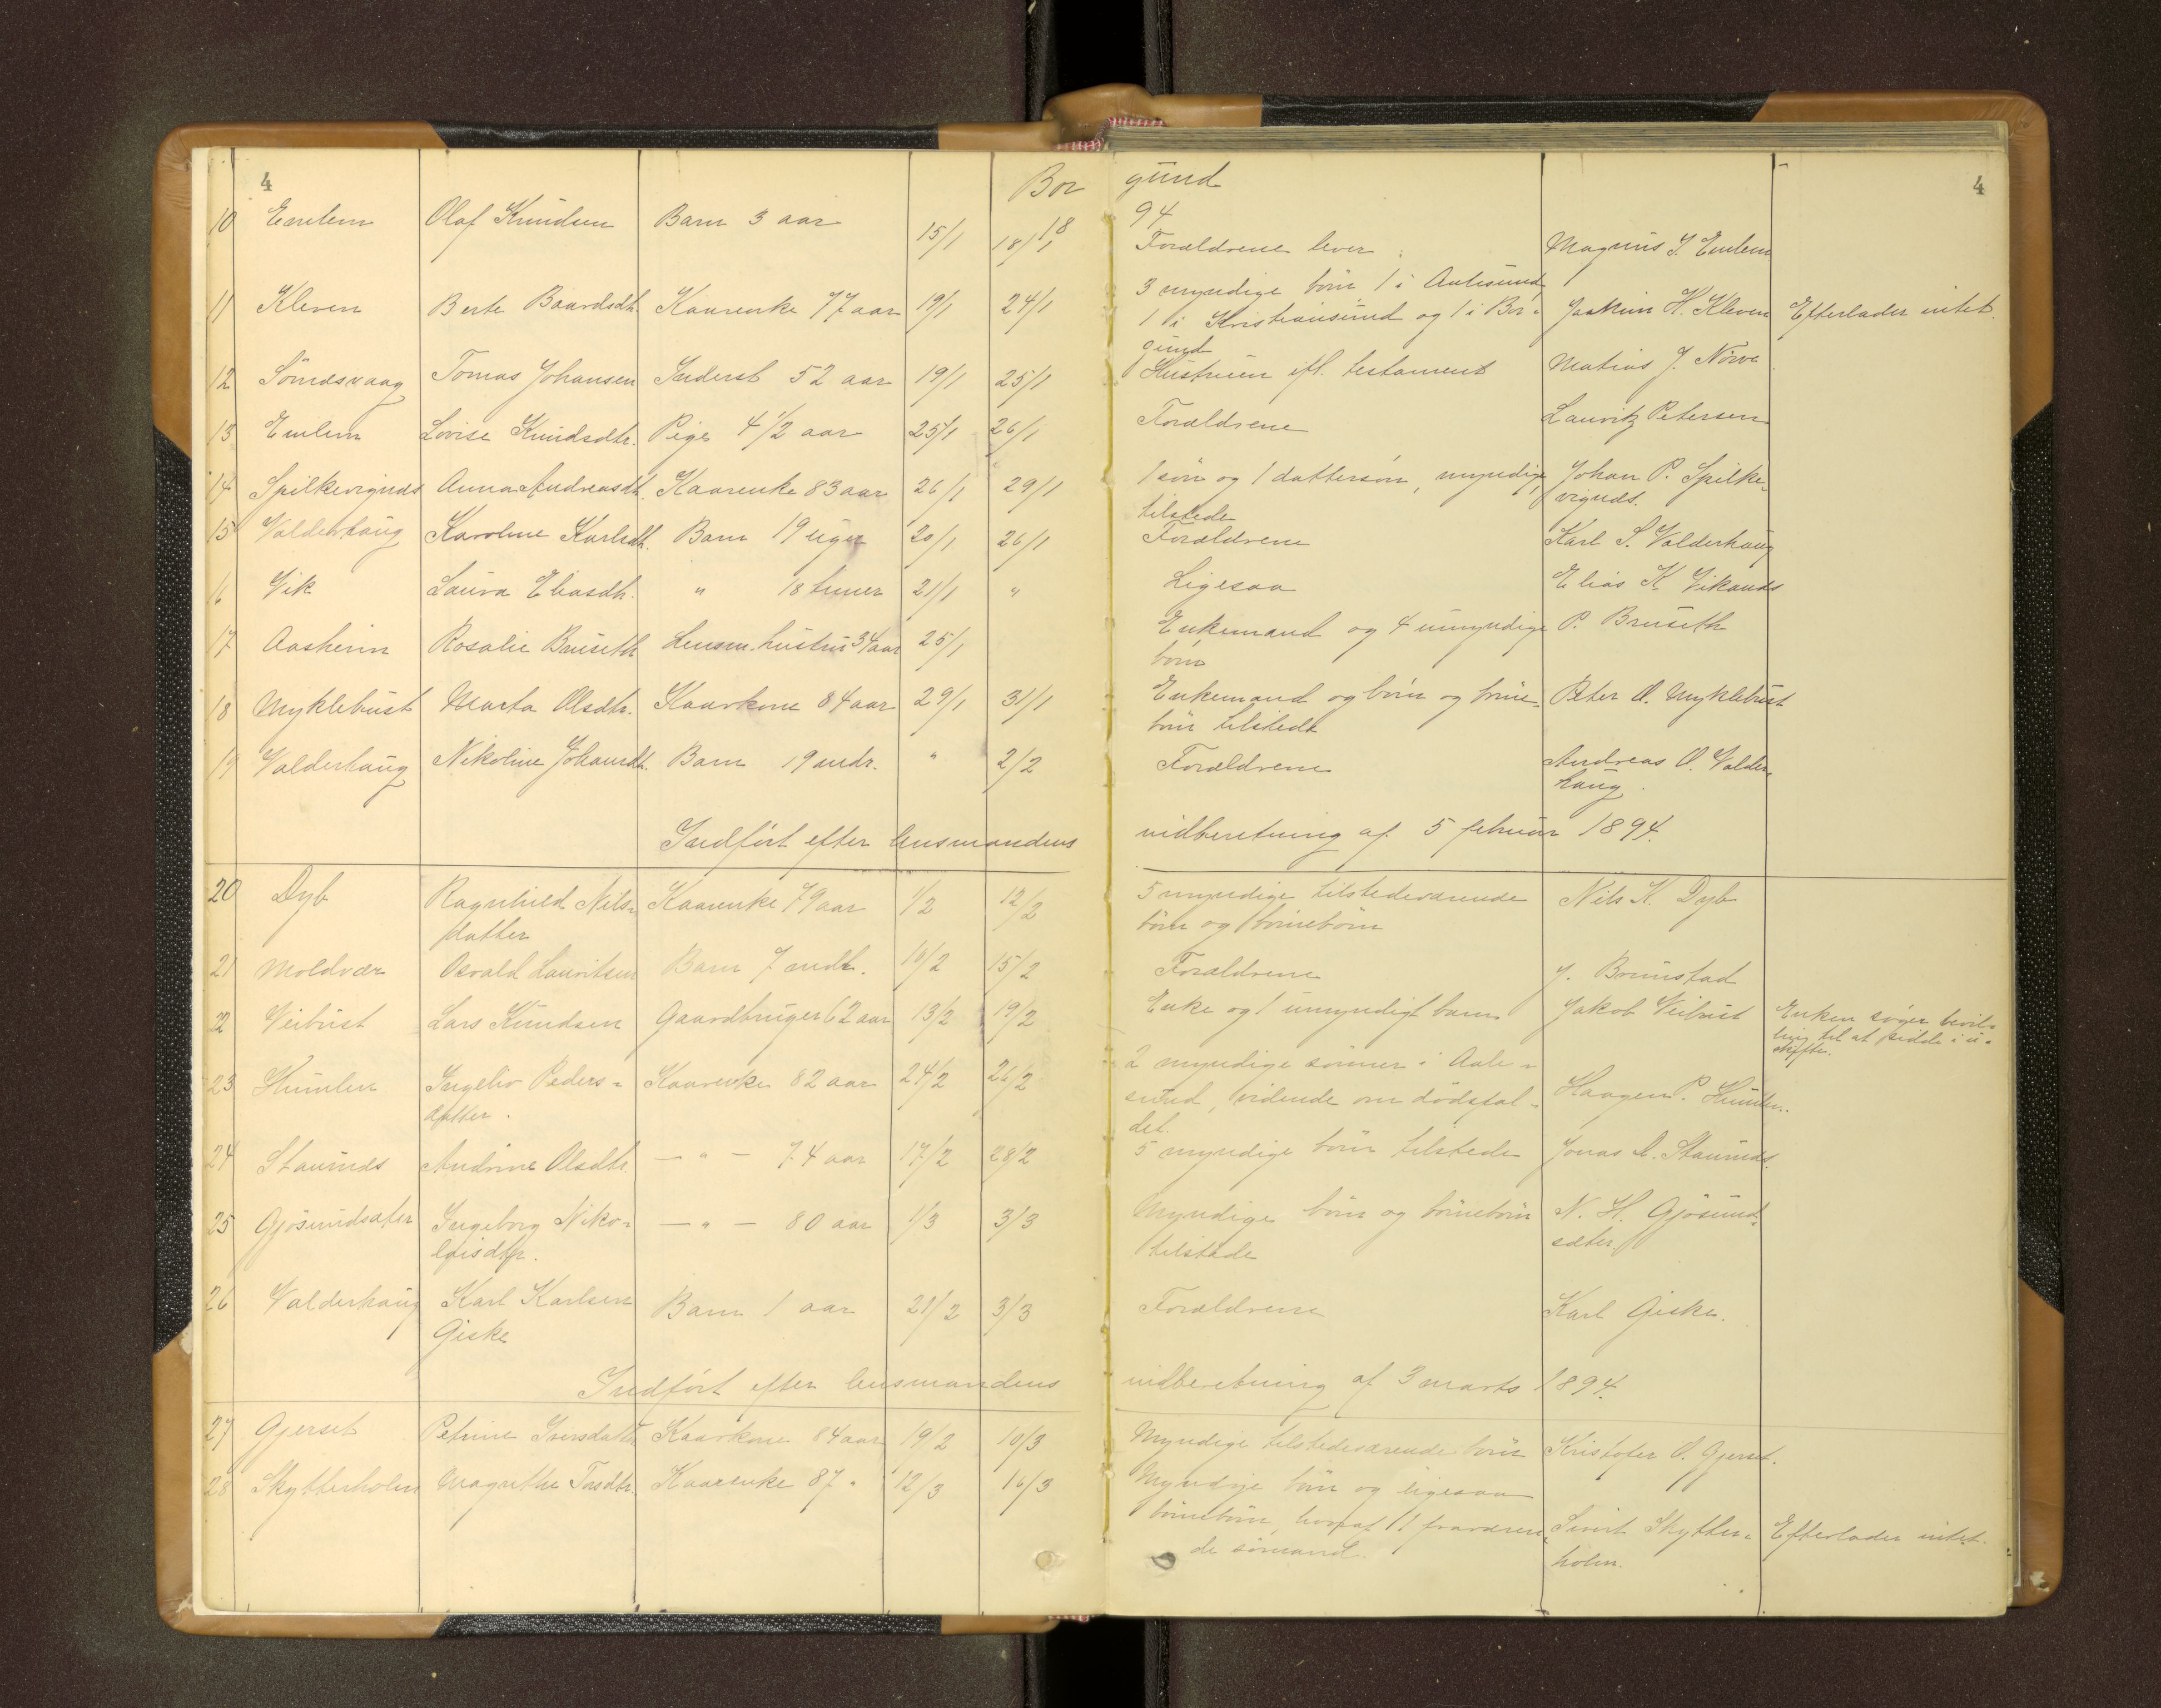 4
Bor gund
4
18 94
10 Emlem Olaf Knudsen Barn 3 aar 15/1 18/1 Forældrene lever Magnus J. Emlem
11 Kleven Berte Baardsdtr. Kaarenke 77 aar 19/1 24/1 3 myndige börn 1 i Aalesund,
1 i Kristiansund og 1 i Bor- Joakim H. Kleven Efterlader intet.
gund
12 Sömdsvaag Tomas Johansen Inderst 52 aar 19/1 25/1 Hustruen ifl. testament Matias J. Nörve
13 Emlem Lovise Knudsdtr. Pige 4 1/2 aar 25/1 26/1 Forældrene Lauritz Petersen
14 Spilkevignæs Anna Andreasdt. Kaarenke 83 aar 26/1 29/1 1 sön og 1 dattersön, myndige, Johan P. Spilke-
tilstede vignæs.
15 Valderhaug Karoline Karlsdt. Barn 19 uger 20/1 26/1 Forældrene Karl S. Valderhaug
16 Vik Laura Eliasdtr. " 18 timer 21/1 " Ligesaa Elias K. Vikanæs
17 Aasheim Rosalie Bruseth Lensm. hustru 34 aar 25/1 Enkemand og 4 umyndige P. Bruseth
börn
18 Myklebust Marta Olsdtr. Kaarkone 84 aar 29/1 31/1 Enkemand og börn og börne- Peter O. Myklebust
börn tilstede
19 Valderhaug Nikoline Johansdt. Barn 19 mdr. " 2/2 Forældrene Andreas O. Valder-
haug.
Indfört efter lensmandens indberetning af 5 februar 1894.
20 Dyb Ragnhild Nils- Kaarenke 79 aar 1/2 12/2 5 myndige tilstedeværende Nils K. Dyb
datter börn og börnebörn
21 Moldvær Osvald Lauritsen Barn 7 mdr. 10/2 15/2 Forældrene J. Brunstad
22 Veibust Lars Knudsen Gaardbruger 62 aar 13/2 19/2 Enke og 1 umyndigt barn Jakob Veibust Enken söger bevil-
ling til at sidde i u-
skifte.
23 Humlen Ingeliv Peders- Kaarenke 82 aar 24/2 26/2 2 myndige sönner i Aale-
datter. sund, vidende om dödsfal- Haagen P. Humlen.
det.
24 Staurnæs Andrine Olsdtr. — " — 74 aar 17/2 28/2 5 myndige börn tilstede Jonas A. Staurnæs.
25 Gjösundsæter Ingeborg Niko- — " — 80 aar 1/3 3/3 Myndige börn og börnebörn N. H. Gjösund-
laisdtr. tilstede sæter
26 Valderhaug Karl Karlsen Barn 1 aar 21/2 3/3 Forældrene Karl Giske.
Giske
Indfört efter lensmandens indberetning af 3 marts 1894.
27 Gjerset Petrine Iversdatter Kaarkone 84 aar 19/2 10/3 Myndige tilstedeværende börn Kristofer O. Gjerset.
28 Skytterholm Magrethe Torsdtr. Kaarenke 87 " 12/3 16/3 Myndige börn og ligesaa
börnebörn, hvoraf 1 fraværen- Sivert Skytter- Efterlader intet.
de sömand. holm.